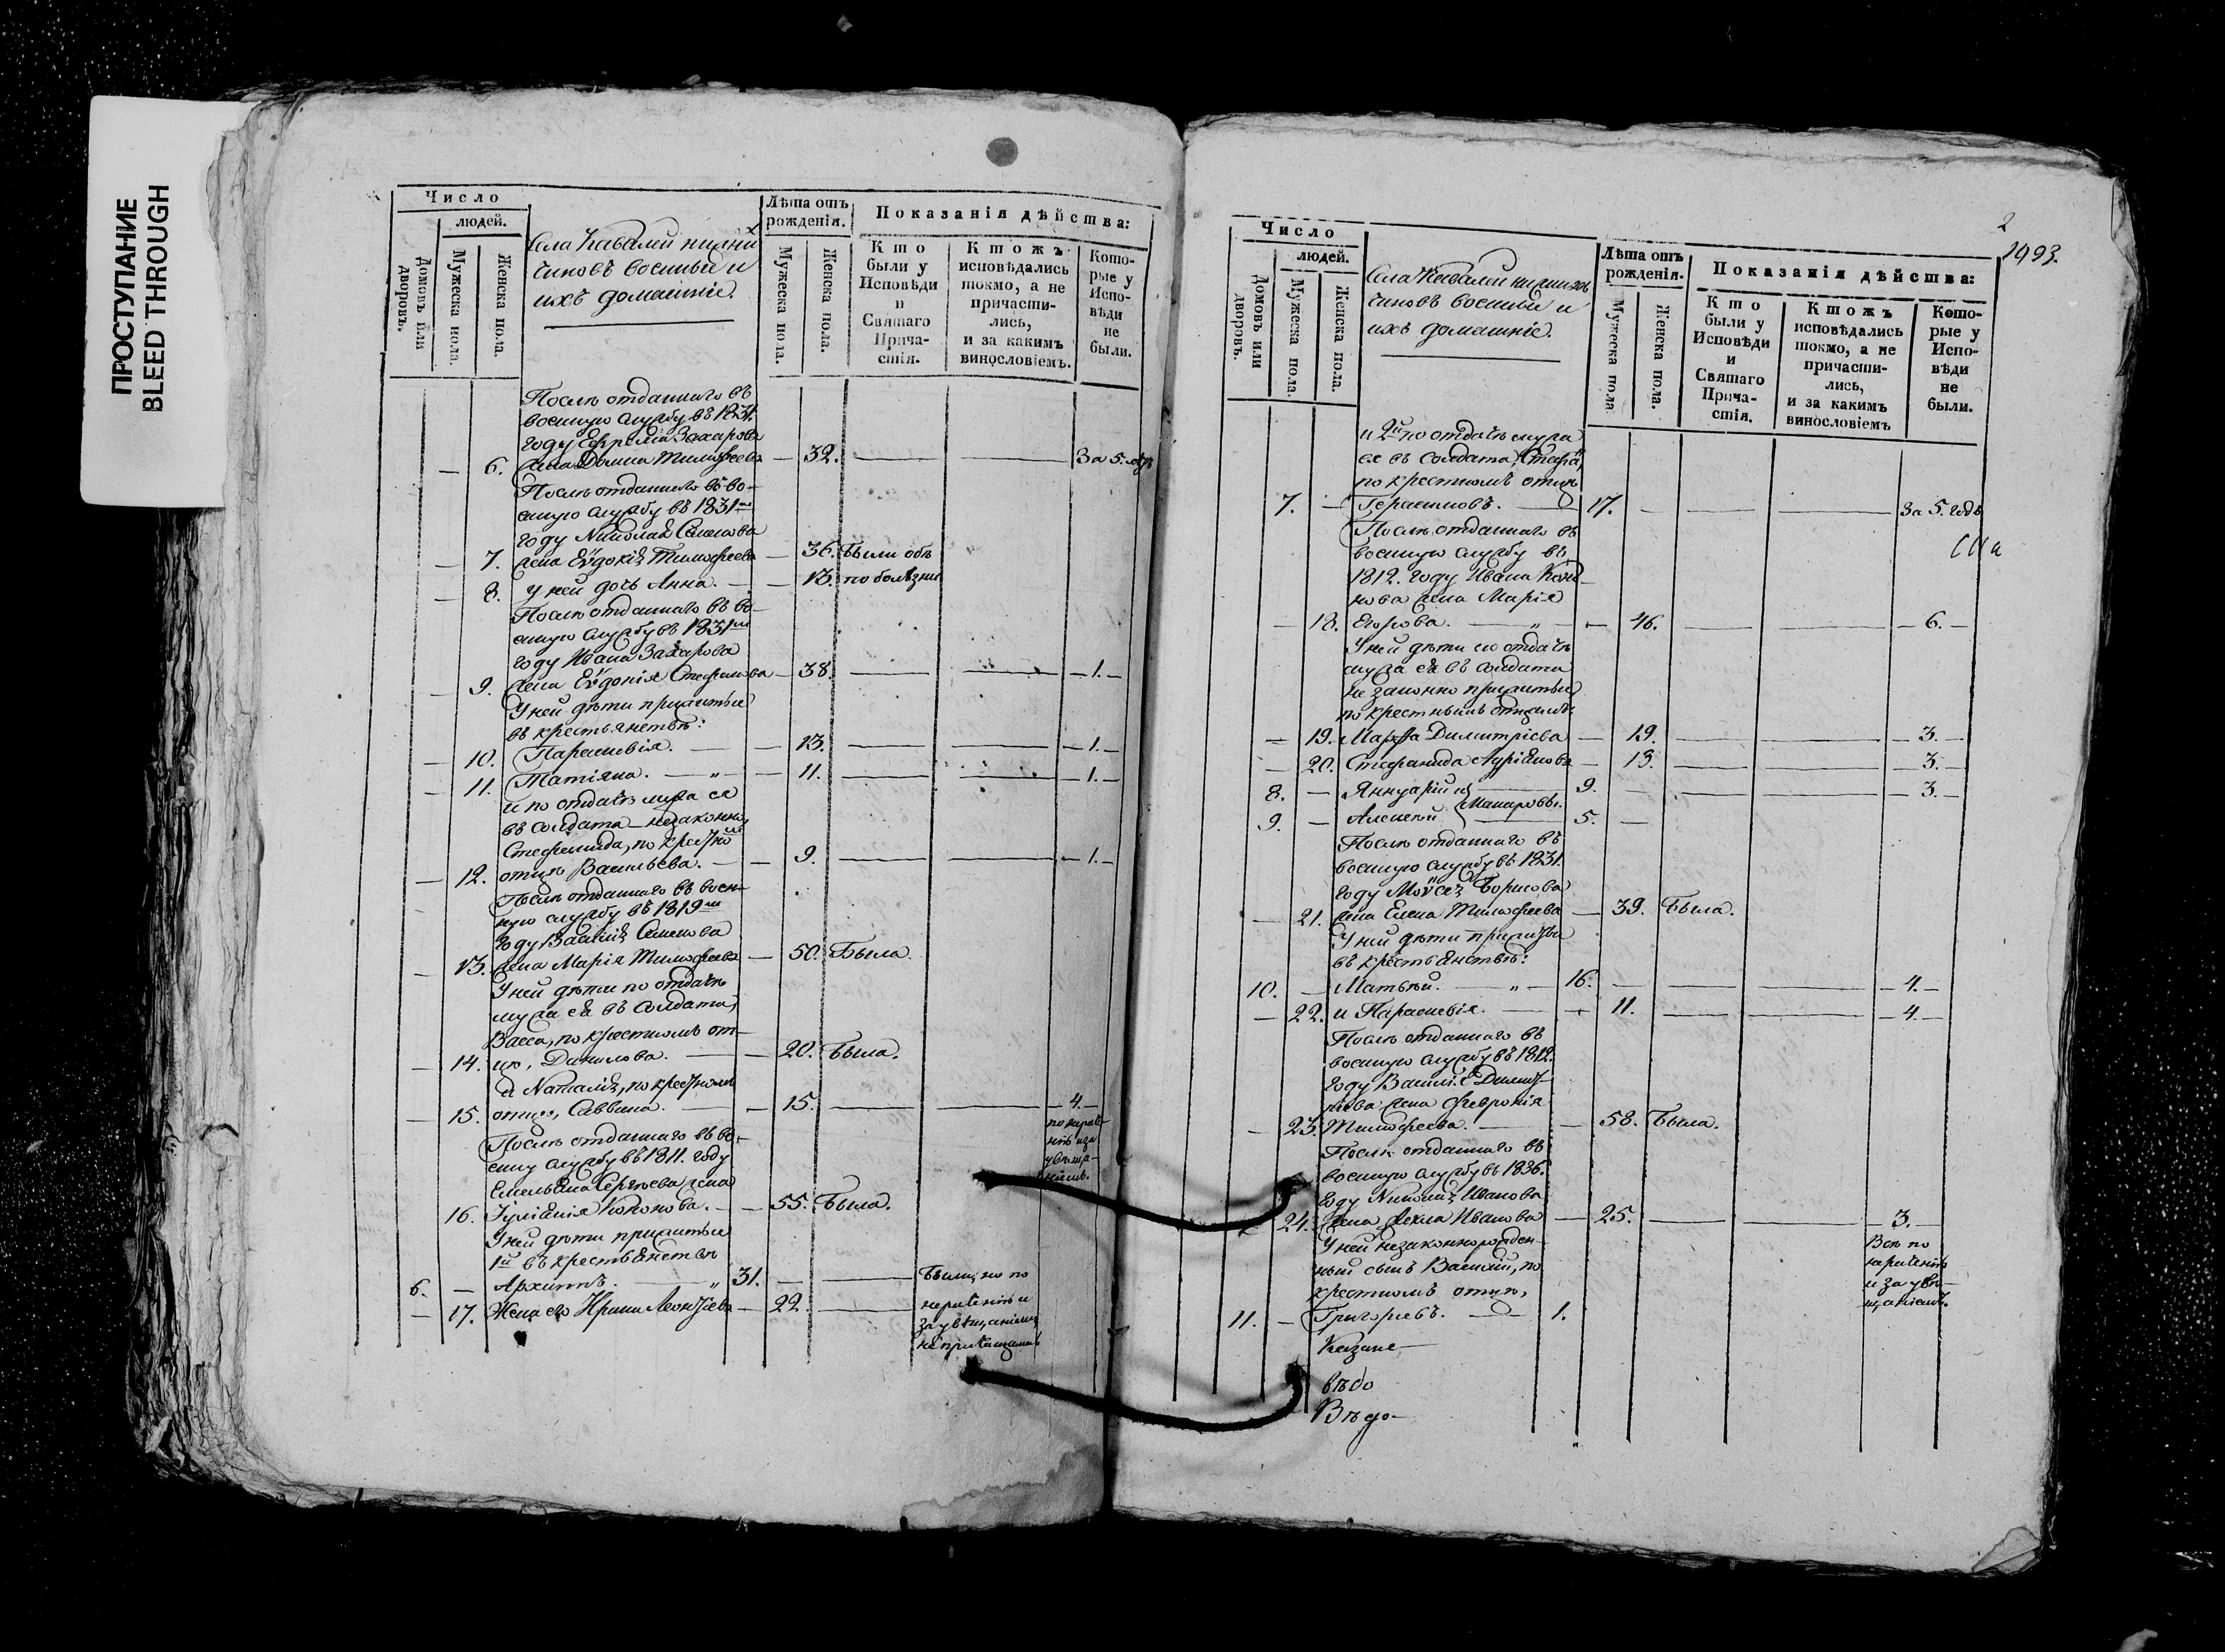 ПРОСТУПАНИЕ
BLEED THROUGH
Число
людей.
Домовъ или дворовъ.
Мужеска пола.
Женска пола.
Села Кавалей нижни
чиновъ военные и
ихъ домашніе.
Лѣта отъ рожденія.
Мужеска пола.
Женска пола.
Показанія дѣйства:
Кто были у Исповѣди и Святаго Прича-стія.
Ктожъ исповѣдались токмо, а не причасти-лись, и за какимъ винословіемъ.
Кото-рые у Испо-вѣди не были.
Послѣ отданнаго въ
военную службу въ 1831.
году Ефрема Захарова
6. жена Домна Тимофеева — 32. За 5.
Послѣ отданнаго въ во-
енную службу въ 1831мъ
году Николая Семенова
7. жена Еѵдокія Тимофеева — 36. Были обѣ
8. У ней дочь Анна. — 13. по болѣзни
Послѣ отданнаго въ во-
енную службу въ 1831мъ
году Ивана Захарова
9. жена Еѵдокія Стефанова — 38. — 1. —
У ней дѣти прижитые
въ крестьянствѣ:
10. Параскевія. — 13. — 1. —
11. Татіяна. — „ — 11. — 1. —
и по отдачѣ мужа ея
въ солдата незаконно
Стефанида, по крестно
12. отцѣ Васильева. — 9. — 1. —
Послѣ отданнаго въ воен-
ную службу въ 1819мъ
году Василія Семенова
13. жена Марія Тимофеева — 50. Была.
У ней дѣти по отдачѣ
мужа ея въ солдата,
Васса, по крестномъ от-
14. цѣ, Данилова. — 20. Была.
и Наталія, по крестномъ
15. отцѣ, Саввина. — 15. — 4. —
Послѣ отданнаго въ во-
енну службу въ 1811. году
Емельяна Сергѣева жена
16. Іуліанія Кононова. — 55. Была.
У ней дѣти прижитые
1й въ крестьянствѣ
6. — Архиппъ. — „ 31. —
17. Жена его Ирина Леонтіева — 22.
Были, но по
нераченію и
за увѣщаніемъ
2
1993.
Число
людей.
Домовъ или дворовъ.
Мужеска пола.
Женска пола.
Села Кавалей нижнихъ
чиновъ военные и
ихъ домашніе.
Лѣта отъ рожденія.
Мужеска пола.
Женска пола.
Показанія дѣйства:
Кто были у Исповѣди и Святаго Прича-стія.
Ктожъ исповѣдались токмо, а не причасти-лись, и за какимъ винословіемъ
Кото-рые у Испо-вѣди не были.
и 2й по отдачѣ мужа
ея въ солдата,
по крестномъ отцѣ
7. — Герасимовъ. — 17. — За 5. годъ
Послѣ отданнаго въ
военную службу въ
1812. году Ивана
нова жена Марія
18. Егорова. — „ — 46. — 6. —
У ней дѣти по отдачѣ
мужа ея въ солдата
не законно прижитые
по крестнымъ отцамъ:
19. Марфа Димитріева — 19. — 3. —
20. Стефанида Андріанова — 13. — 3. —
8. — Яннуарій и 9. — 3. —
Макаровы.
9. — Алексѣй 5. —
Послѣ отданнаго въ
военную службу въ 1831.
году Моисея Борисова
21. жена Елена Тимофеева — 39. Была.
У ней дѣти прижиты
въ крестьянствѣ:
10. — Матвѣй. — „ — 16. — 4. —
22. и Параскевія. — 11. — 4. —
Послѣ отданнаго въ
военную службу въ 1812.
году Василія Димит-
ріева жена Февронія
23. Тимофеева. — 58. Была.
Послѣ отданнаго въ
военную службу въ 1836.
году Никиты Иванова
24. жена Фекла Иванова — 25. — 3. —
У ней незаконнорожден-
ный сынъ Василій, по
крестномъ отцѣ,
11. — Григорьевъ. — 1.
Всѣ по
нераченію
и за увѣ-
щаніемъ.
Вѣдо-